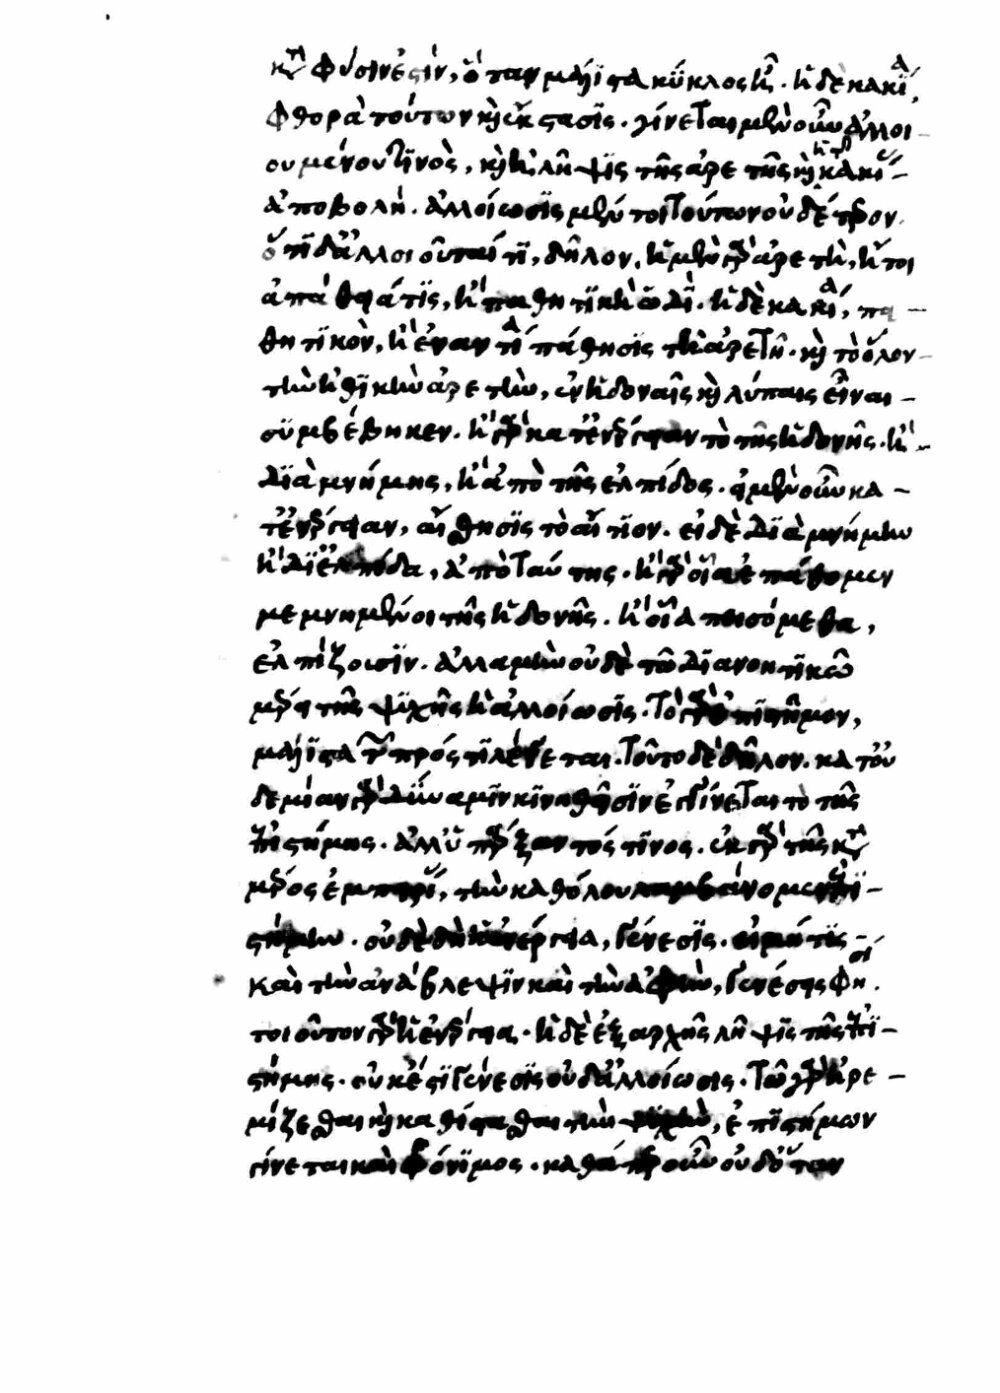 κατὰ φύσιν ἐστίν, ὅταν μάλιστα κύκλος ᾖ. ἡ δὲ κακία,
φθορὰ τούτων καὶ ἔκστασις. γίνεται μὲν οὖν ἀλλοι-
ουμένου τινὸς, καὶ ἡ λῆψις τῆς ἀρετῆς καὶ ἡ τῆς κακίας
ἀποβολή. ἀλλοίωσις μέν τοι τούτων οὐδέτερον.
ὅτι δ' ἀλλοιοῦταί τι, δῆλον. ἡ μὲν γὰρ ἀρετὴ, ἤτοι
ἀπάθειά τις, ἢ παθητικὴ ὡδί. ἡ δὲ κακία, πα-
θητικὸν, ἢ ἐναντία πάθησις τῇ ἀρετῇ. καὶ τὸ ὅλον
τὴν ἠθικὴν ἀρετὴν, ἐν ἡδοναῖς καὶ λύπαις εἶναι
συμβέβηκεν. ἢ γὰρ κατ' ἐνέργειαν τὸ τῆς ἡδονῆς. ἢ
διὰ μνήμης, ἢ ἀπὸ τῆς ἐλπίδος. εἰ μὲν οὖν κα-
τ' ἐνέργειαν, αἴσθησις τὸ αἴτιον. εἰ δὲ διὰ μνήμην
ἢ δι' ἐλπίδα, ἀπὸ ταύτης. ἢ γὰρ οἷα ἐπάθομεν
μεμνημένοι τῆς ἡδονῆς. ἢ οἷα πεισόμεθα,
ἐλπίζουσιν. ἀλλὰ μὴν οὐδὲ τῶ διανοητικῶ
μέρει τῆς ψυχῆς ἡ ἀλλοίωσις. τὸ γὰρ ἐπιστῆμον,
μάλιστα τῶν πρός τι λέγεται. τοῦτο δὲ δῆλον. κατ' οὐ
δεμίαν γὰρ δύναμιν κινηθεῖσιν ἐγγίνεται τὸ τῆς
ἐπιστήμης. ἀλλ' ὑπάρξαντός τινος. ἐκ γὰρ τῆς κατὰ
μέρος ἐμπειρίας, τὴν καθόλου λαμβάνομεν ἐπι-
στήμην. οὐδὲ δὴ ἡ ἐνέργεια, γένεσις. εἰ μή τις
καὶ τὴν ἀνάβλεψιν καὶ τὴν ἁφὴν, γενέσεις φησί.
τοιοῦτον γὰρ ἡ ἐνέργεια. ἡ δὲ ἐξαρχῆς λῆψις τῆς ἐπι-
στήμης. οὐκ ἔστι γένεσις οὐδ' ἀλλοίωσις. τῶ γὰρ ἠρε-
μίζεσθαι καὶ καθίστασθαι τὴν ψυχὴν, ἐπιστήμων
γίνεται καὶ φρόνιμος. καθάπερ οὖν οὐδ' ὅταν